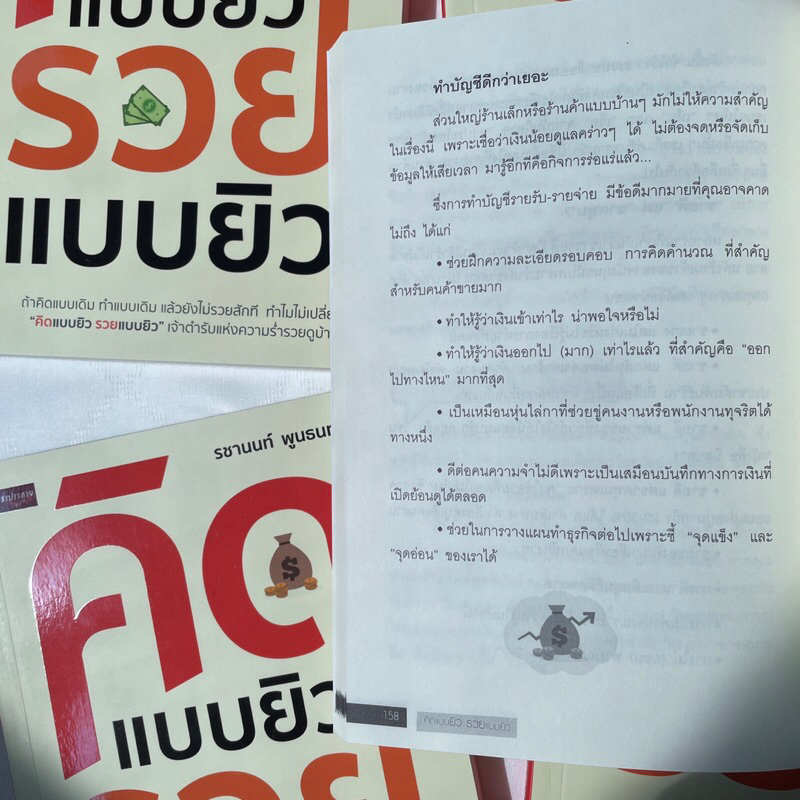 แบบยิว
รวย
แบบยิว
ถ้าคิดแบบเดิม ทำแบบเดิม แล้วยังไม่รวยสักที ทำไมไม่เปลี่
“คิดแบบยิว รวยแบบยิว” เจ้าตำรับแห่งความร่ำรวยดูบ้า
รชานนท์ พูนธน
คิด
แบบยิว
รวย
ทำบัญชีดีกว่าเยอะ
ส่วนใหญ่ร้านเล็กหรือร้านค้าแบบบ้านๆ มักไม่ให้ความสำคัญ
ในเรื่องนี้ เพราะเชื่อว่าเงินน้อยดูแลคร่าวๆ ได้ ไม่ต้องจดหรือจัดเก็บ
ข้อมูลให้เสียเวลา มารู้อีกทีคือกิจการร่อแร่แล้ว...
ซึ่งการทำบัญชีรายรับ-รายจ่าย มีข้อดีมากมายที่คุณอาจคาด
ไม่ถึง ได้แก่
• ช่วยฝึกความละเอียดรอบคอบ การคิดคำนวณ ที่สำคัญ
สำหรับคนค้าขายมาก
• ทำให้รู้ว่าเงินเข้าเท่าไร น่าพอใจหรือไม่
• ทำให้รู้ว่าเงินออกไป (มาก) เท่าไรแล้ว ที่สำคัญคือ “ออก
ไปทางไหน” มากที่สุด
• เป็นเหมือนหุ่นไล่กาที่ช่วยขู่คนงานหรือพนักงานทุจริตได้
ทางหนึ่ง
• ดีต่อคนความจำไม่ดีเพราะเป็นเสมือนบันทึกทางการเงินที่
เปิดย้อนดูได้ตลอด
• ช่วยในการวางแผนทำธุรกิจต่อไปเพราะชี้ “จุดแข็ง” และ
“จุดอ่อน” ของเราได้
$
158
คิดแบบยิว รวยแบบยิว